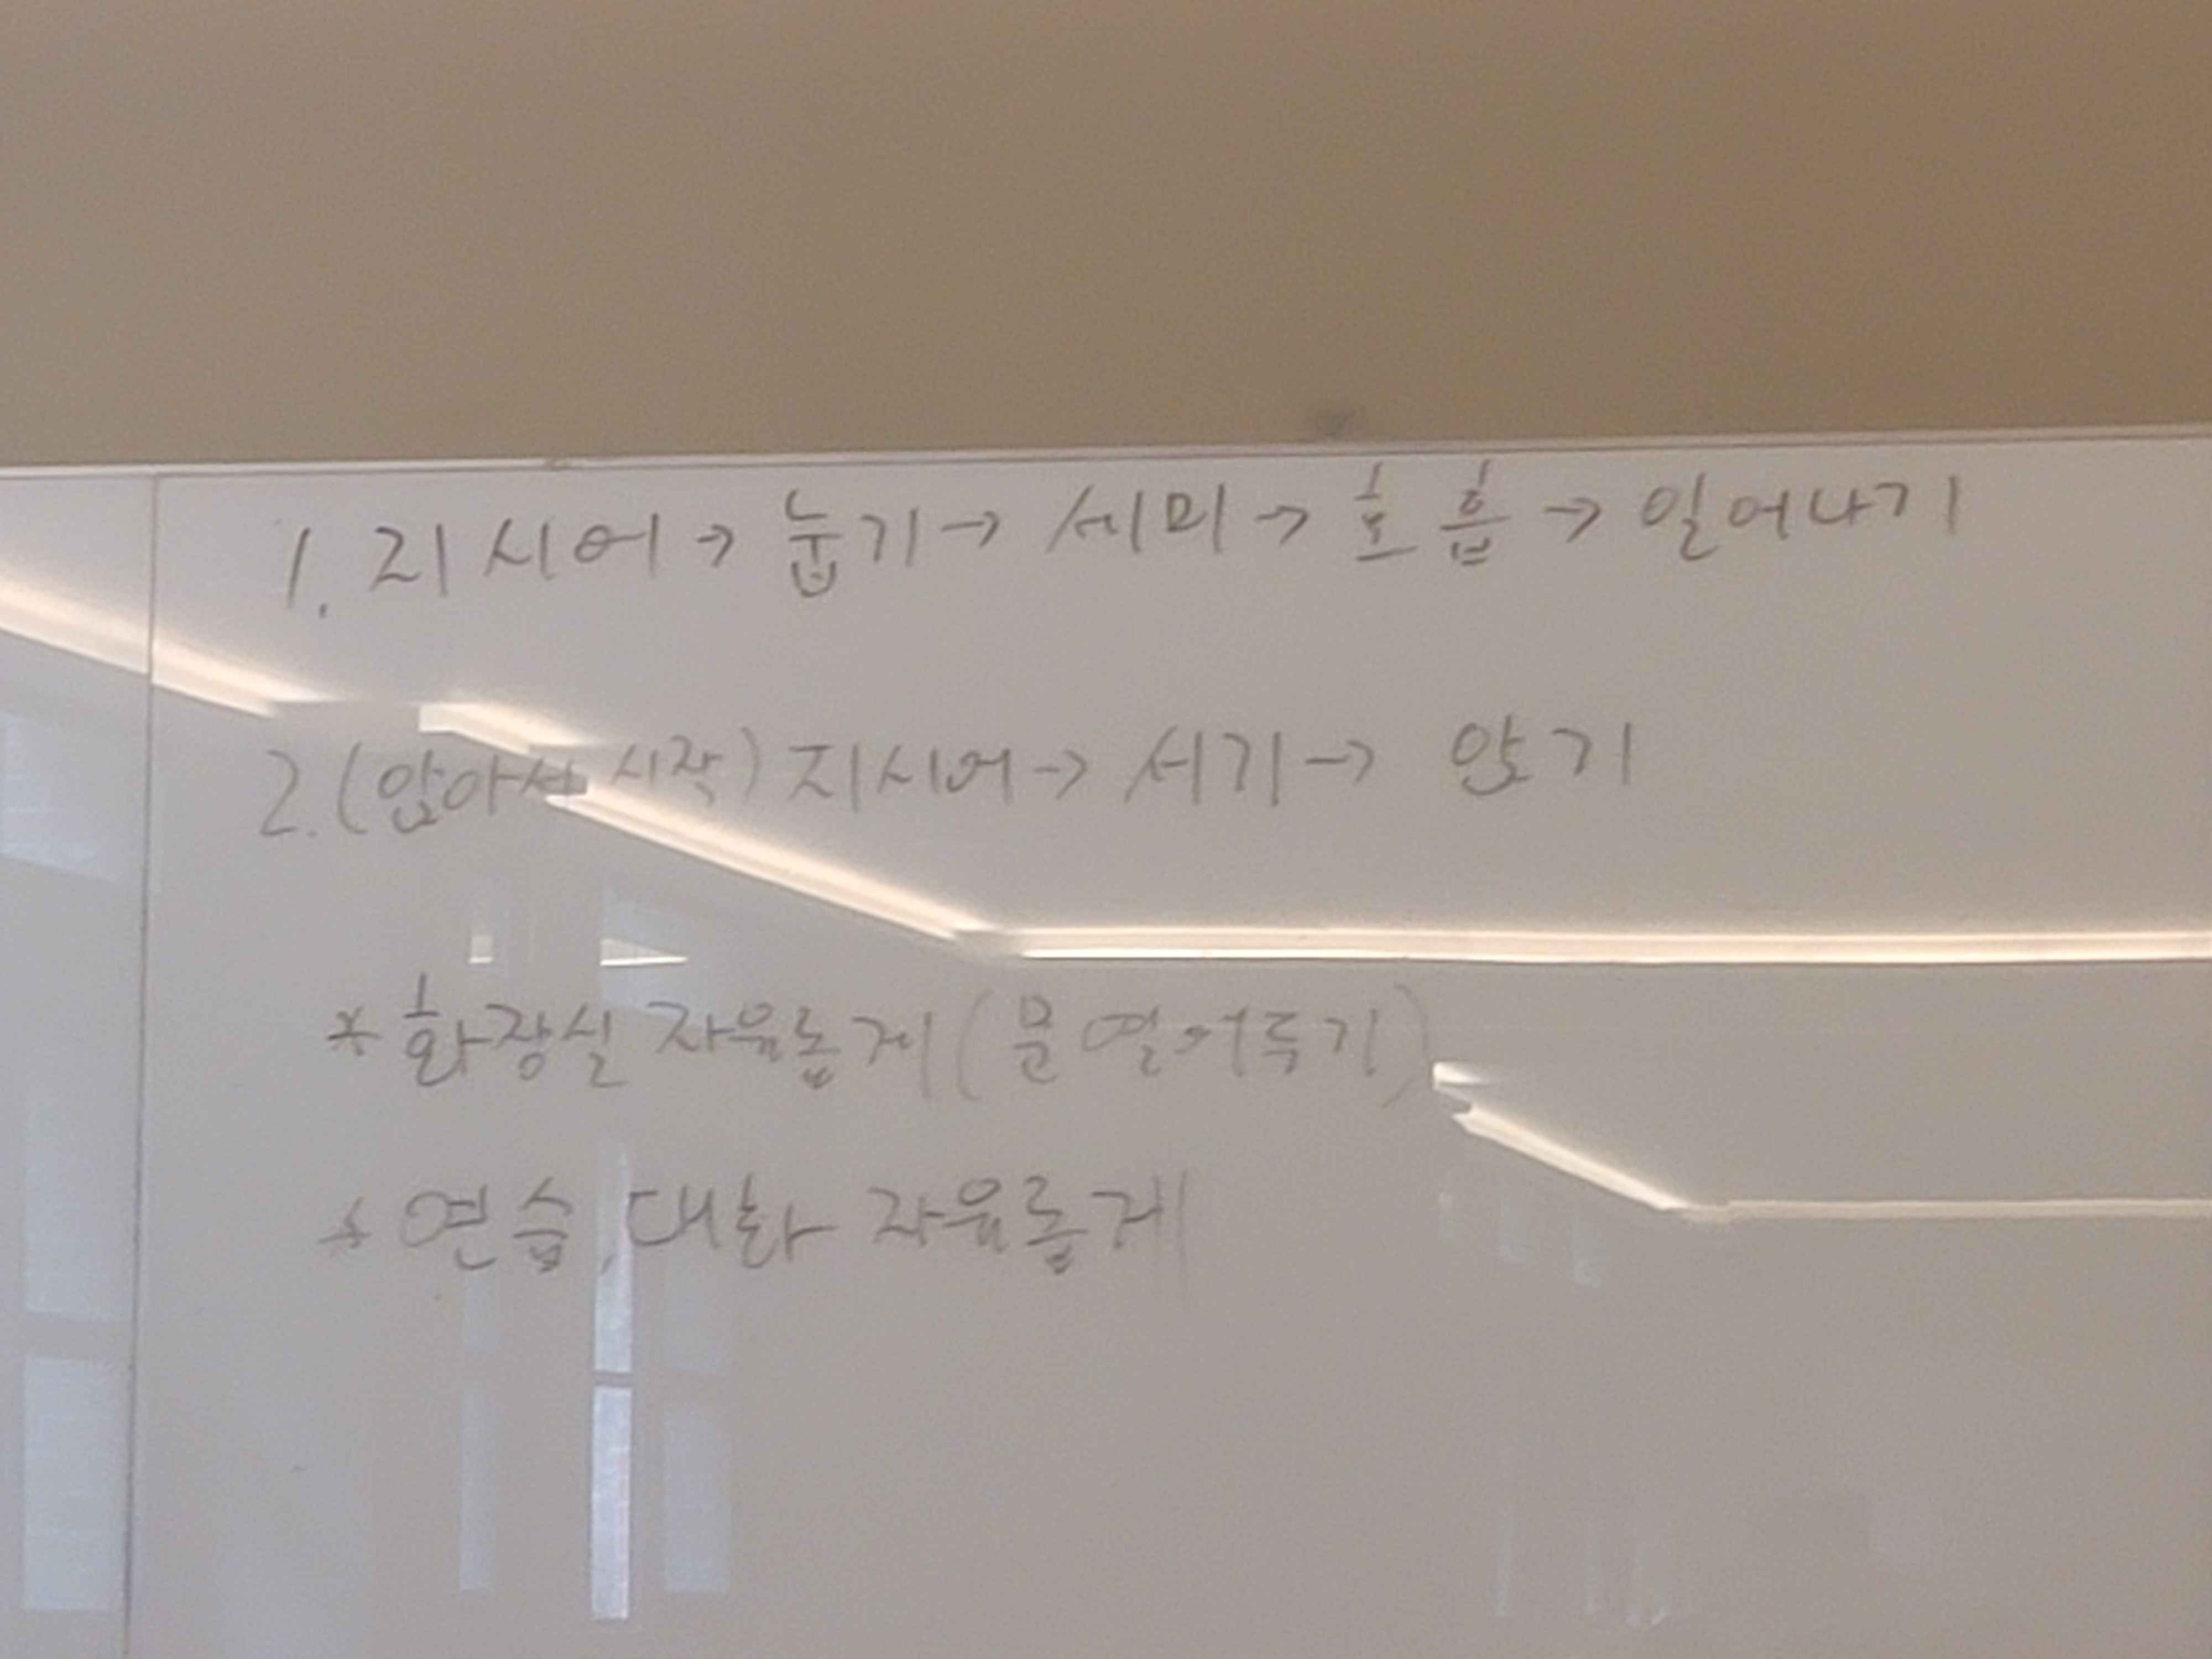 1. 지시어 → 눕기 → 세미 → 호흡 → 일어나기
2. (앉아서 시작) 지시어 → 서기 → 앉기
* 화장실 자유롭게 (문 열어두기)
* 연습, 대화 자유롭게